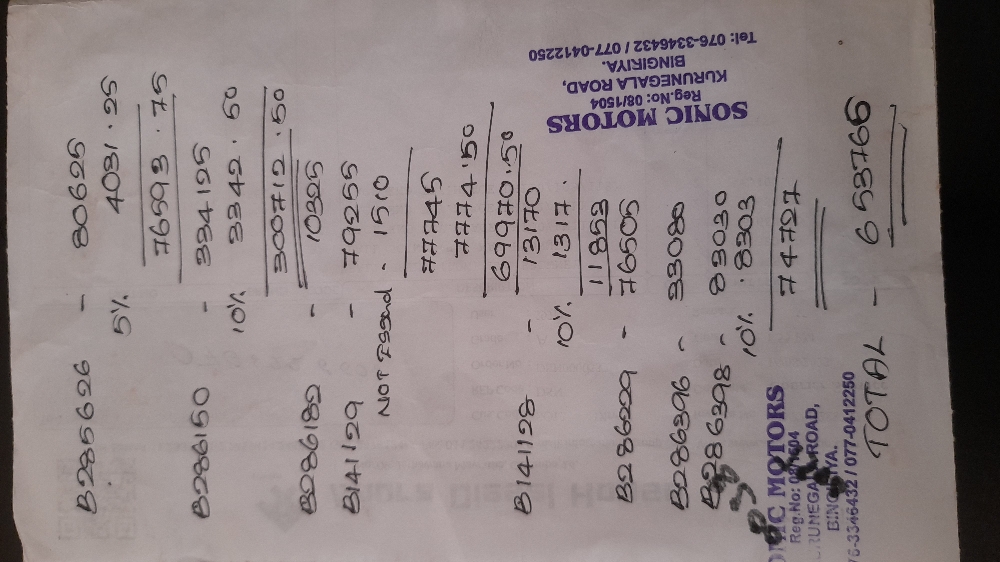 B285626 - 80625
5% 4031.25
76593.75
B286150 - 334125
10% 3342.50
300712.50
B286182 - 10325
B141129 - 79255
NOT ISSUED. 1510
77745
7774.50
69970.50
B141128 - 13170
10% 1317.
11853
B286229 - 76505
B286396 - 33080
B286398 - 83030
10% .8303
74727
TOTAL - 653766
SONIC MOTORS
Reg.No: 08/1504
KURUNEGALA ROAD,
BINGIRIYA.
Tel: 076-3346432 / 077-0412250
SONIC MOTORS
Reg.No: 08/1504
KURUNEGALA ROAD,
BINGIRIYA.
76-3346432 / 077-0412250